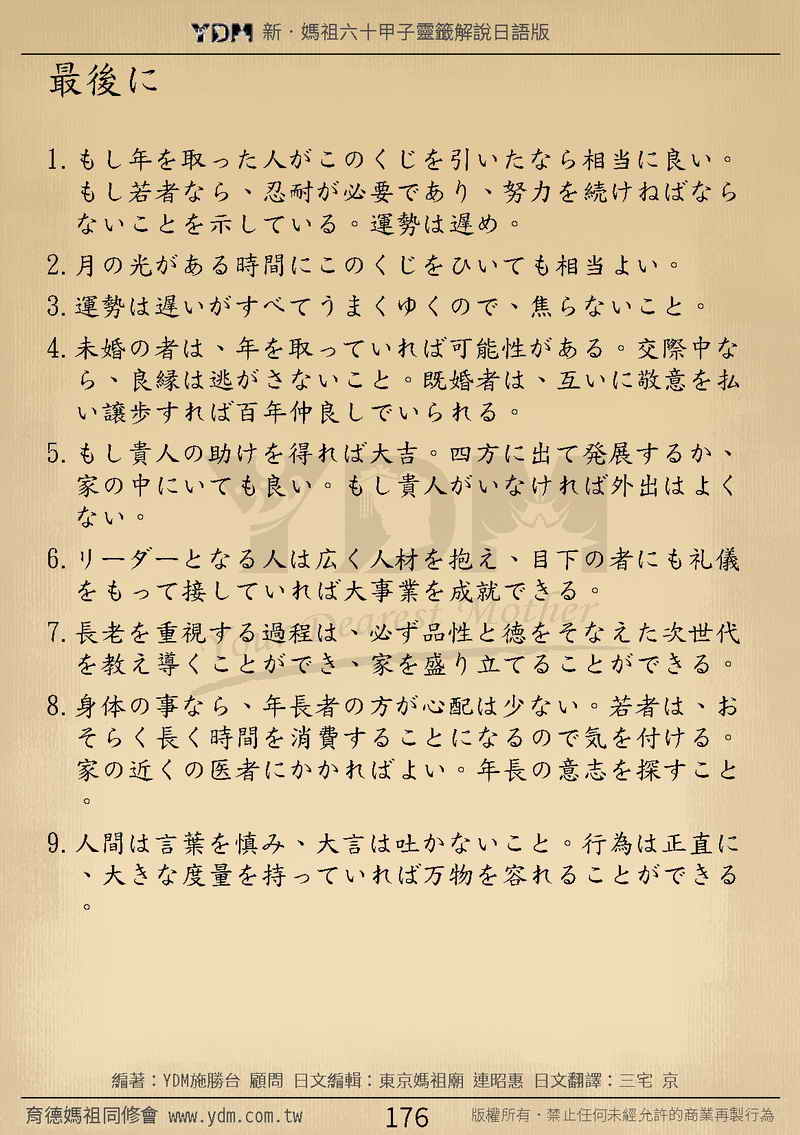 YDM 新·媽祖六十甲子靈籤解說日語版
最後に
1. もし年を取った人がこのくじを引いたなら相当に良い。
もし若者なら、忍耐が必要であり、努力を続けねばなら
ないことを示している。運勢は遅め。
2. 月の光がある時間にこのくじをひいても相当よい。
3. 運勢は遅いがすべてうまくゆくので、焦らないこと。
4. 未婚の者は、年を取っていれば可能性がある。交際中な
ら、良縁は逃がさないこと。既婚者は、互いに敬意を払
い譲歩すれば百年仲良しでいられる。
5. もし貴人の助けを得れば大吉。四方に出て発展するか、
家の中にいても良い。もし貴人がいなければ外出はよく
ない。
6. リーダーとなる人は広く人材を抱え、目下の者にも礼儀
をもって接していれば大事業を成就できる。
7. 長老を重視する過程は、必ず品性と徳をそなえた次世代
を教え導くことができ、家を盛り立てることができる。
8. 身体の事なら、年長者の方が心配は少ない。若者は、お
そらく長く時間を消費することになるので気を付ける。
家の近くの医者にかかればよい。年長の意志を探すこと
。
9. 人間は言葉を慎み、大言は吐かないこと。行為は正直に
、大きな度量を持っていれば万物を容れることができる
。
YDM
Your Dearest Mother
編著：YDM施勝台 顧問 日文編輯：東京媽祖廟 連昭惠 日文翻譯：三宅 京
育德媽祖同修會 www.ydm.com.tw 176 版權所有·禁止任何未經允許的商業再製行為